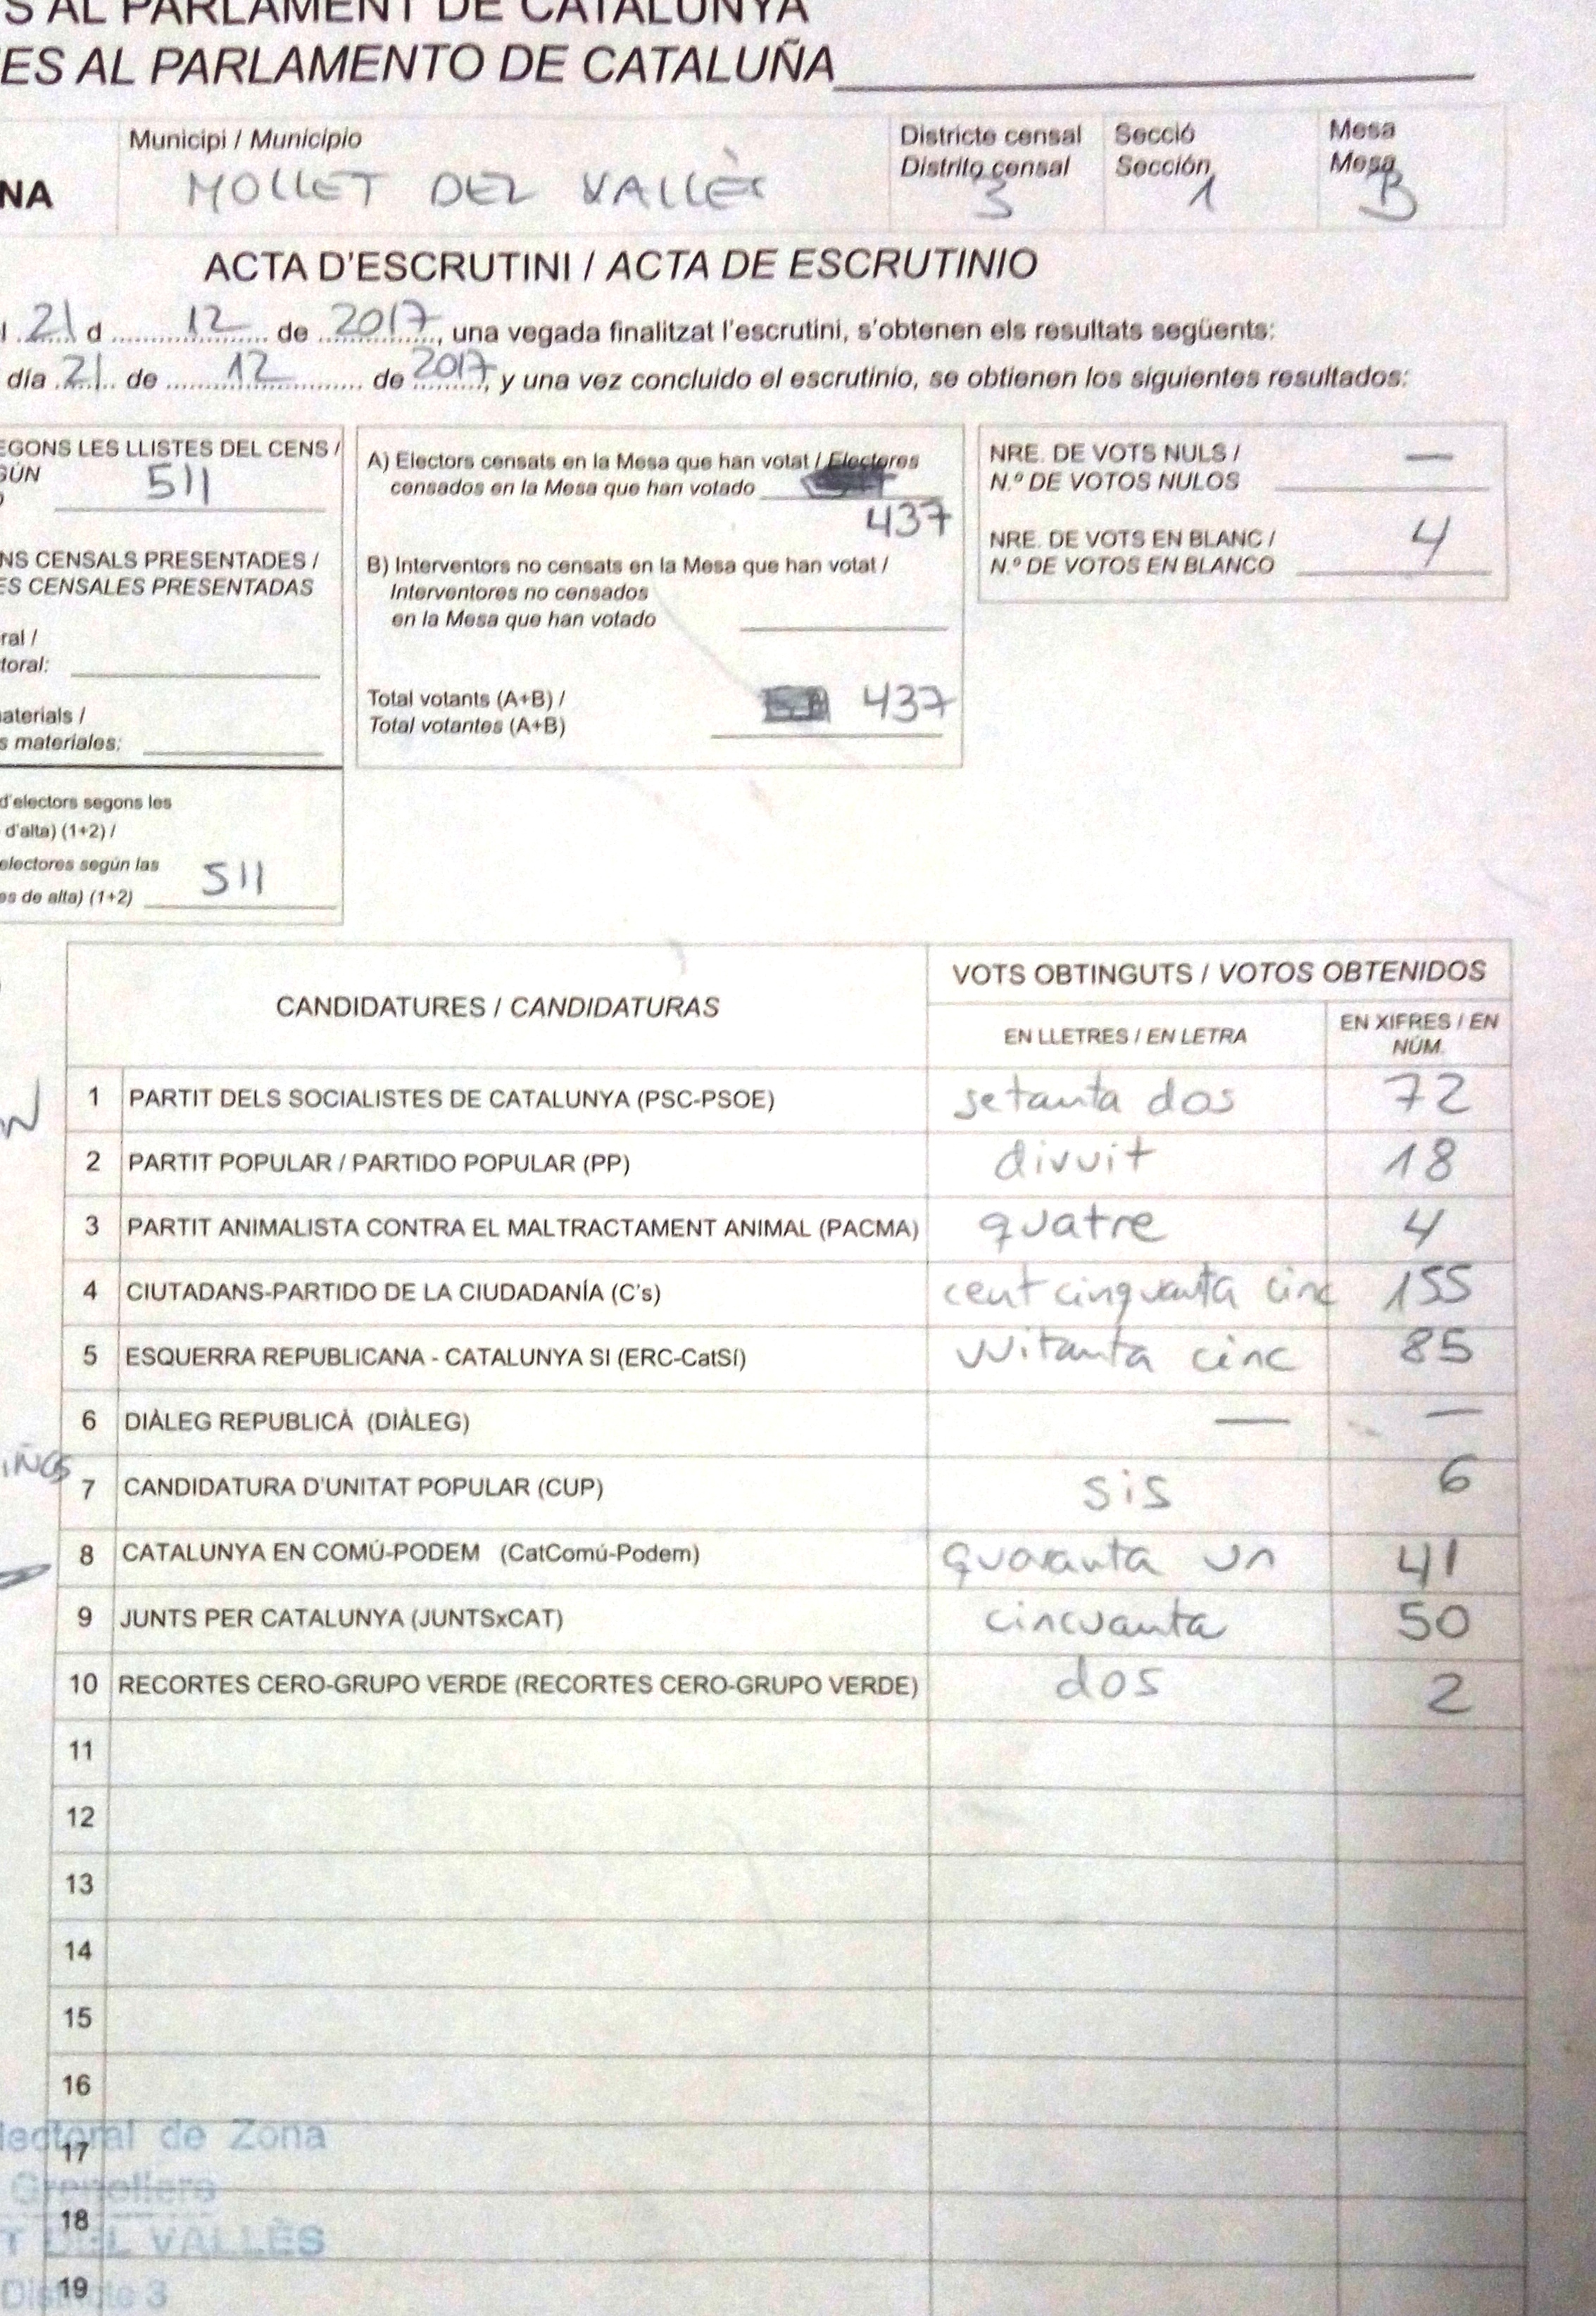 S AL PARLAMENT DE CATALUNYA
ES AL PARLAMENTO DE CATALUÑA
Municipi / Municipio
Districte censal
Distrito censal
Secció
Sección
Mesa
Mesa
NA
MOLLET DEL VALLÈS
3
1
B
ACTA D'ESCRUTINI / ACTA DE ESCRUTINIO
l 21 d 12 de 2017, una vegada finalitzat l'escrutini, s'obtenen els resultats següents:
día 21 de 12 de 2017, y una vez concluido el escrutinio, se obtienen los siguientes resultados:
EGONS LES LLISTES DEL CENS /
GÚN
511
NS CENSALS PRESENTADES /
ES CENSALES PRESENTADAS
ral /
toral:
aterials /
s materiales:
d'electors segons les
d'alta) (1+2) /
electores según las
es de alta) (1+2) 511
A) Electors censats en la Mesa que han votat / Electores
censados en la Mesa que han votado
437
B) Interventors no censats en la Mesa que han votat /
Interventores no censados
en la Mesa que han votado
Total votants (A+B) /
Total votantes (A+B)
437
NRE. DE VOTS NULS /
N.º DE VOTOS NULOS
—
NRE. DE VOTS EN BLANC /
N.º DE VOTOS EN BLANCO
4
CANDIDATURES / CANDIDATURAS
VOTS OBTINGUTS / VOTOS OBTENIDOS
EN LLETRES / EN LETRA
EN XIFRES / EN
NÚM.
1 PARTIT DELS SOCIALISTES DE CATALUNYA (PSC-PSOE) setanta dos 72
2 PARTIT POPULAR / PARTIDO POPULAR (PP) divuit 18
3 PARTIT ANIMALISTA CONTRA EL MALTRACTAMENT ANIMAL (PACMA) quatre 4
4 CIUTADANS-PARTIDO DE LA CIUDADANÍA (C's) cent cinquanta cinc 155
5 ESQUERRA REPUBLICANA - CATALUNYA SI (ERC-CatSí) vuitanta cinc 85
6 DIÀLEG REPUBLICÀ (DIÀLEG) — —
7 CANDIDATURA D'UNITAT POPULAR (CUP) sis 6
8 CATALUNYA EN COMÚ-PODEM (CatComú-Podem) quaranta un 41
9 JUNTS PER CATALUNYA (JUNTSxCAT) cincuanta 50
10 RECORTES CERO-GRUPO VERDE (RECORTES CERO-GRUPO VERDE) dos 2
11
12
13
14
15
16
17
18
19
lectoral de Zona
Granollers
T DEL VALLÈS
Districte 3